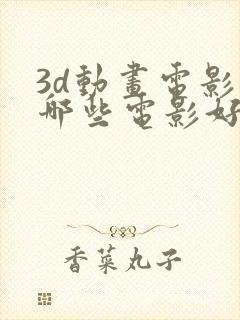 3d動畫電影
哪些電影好
香菜丸子